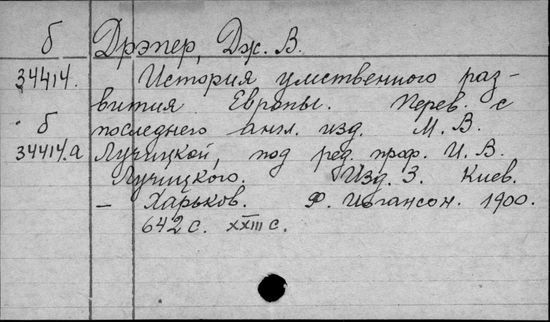 б Дрэпер, Дж. В.
34414. История умственного раз-
вития Европы. Перев. с
б последнего англ. изд. М. В.
34414.а Лучицкой, под ред. проф. И. В.
Лучицкого. Изд. 3. Киев.
– Харьков. Ф. Иогансон. 1900.
642 с. XXIII с.